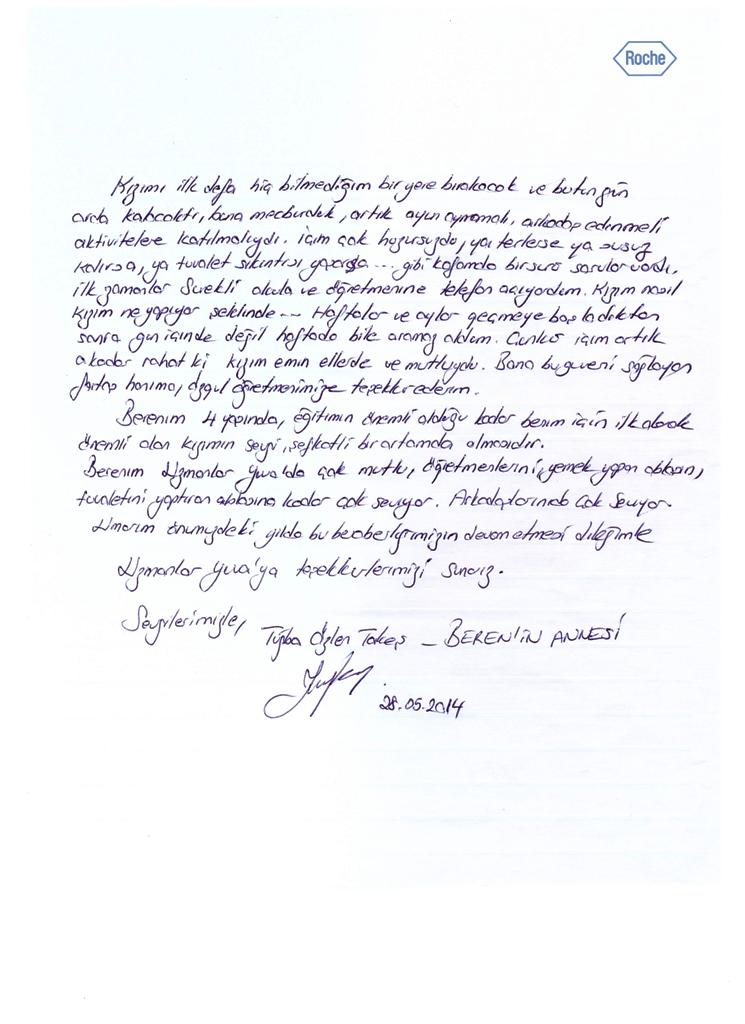 Roche
Kızımı ilk defa hiç bilmediğim bir yere bırakacak ve bütün gün
orda kalacaktı, buna mecburduk, artık oyun oynamalı, arkadaş edinmeli
aktivitelere katılmalıydı. İçim çok huzursuzdu, ya terlerse ya susuz
kalırsa, ya tuvalet sıkıntısı yaşarsa .... gibi kafamda bir sürü sorular vardı.
İlk zamanlar Sürekli okula ve öğretmenine telefon açıyordum. Kızım nasıl
Kızım ne yapıyor şeklinde --- Haftalar ve aylar geçmeye başladıktan
sonra gün içinde değil haftada bile aramaz oldum. Çünkü içim artık
o kadar rahat ki kızım emin ellerde ve mutluydu. Bana bu güveni sağlayan
hanıma, öğretmenimize teşekkür ederim.
Berenim 4 yaşında, eğitimin önemli olduğu kadar benim için ilk olarak
önemli olan kızımın sevgi, şefkatli bir ortamda olmasıdır.
Berenim Uzmanlar Yuva'da çok mutlu, öğretmenlerini, yemek yapan ablasını,
tuvaletini yaptıran ablasına kadar çok seviyor. Arkadaşlarınıda Çok Seviyor.
Umarım önümüzdeki yılda bu beraberliğimizin devam etmesi dileğimle
Uzmanlar Yuva'ya teşekkürlerimizi sunarız.
Sevgilerimizle,
Tuğba Özlen Tokeş – BEREN'İN ANNESİ
28.05.2014